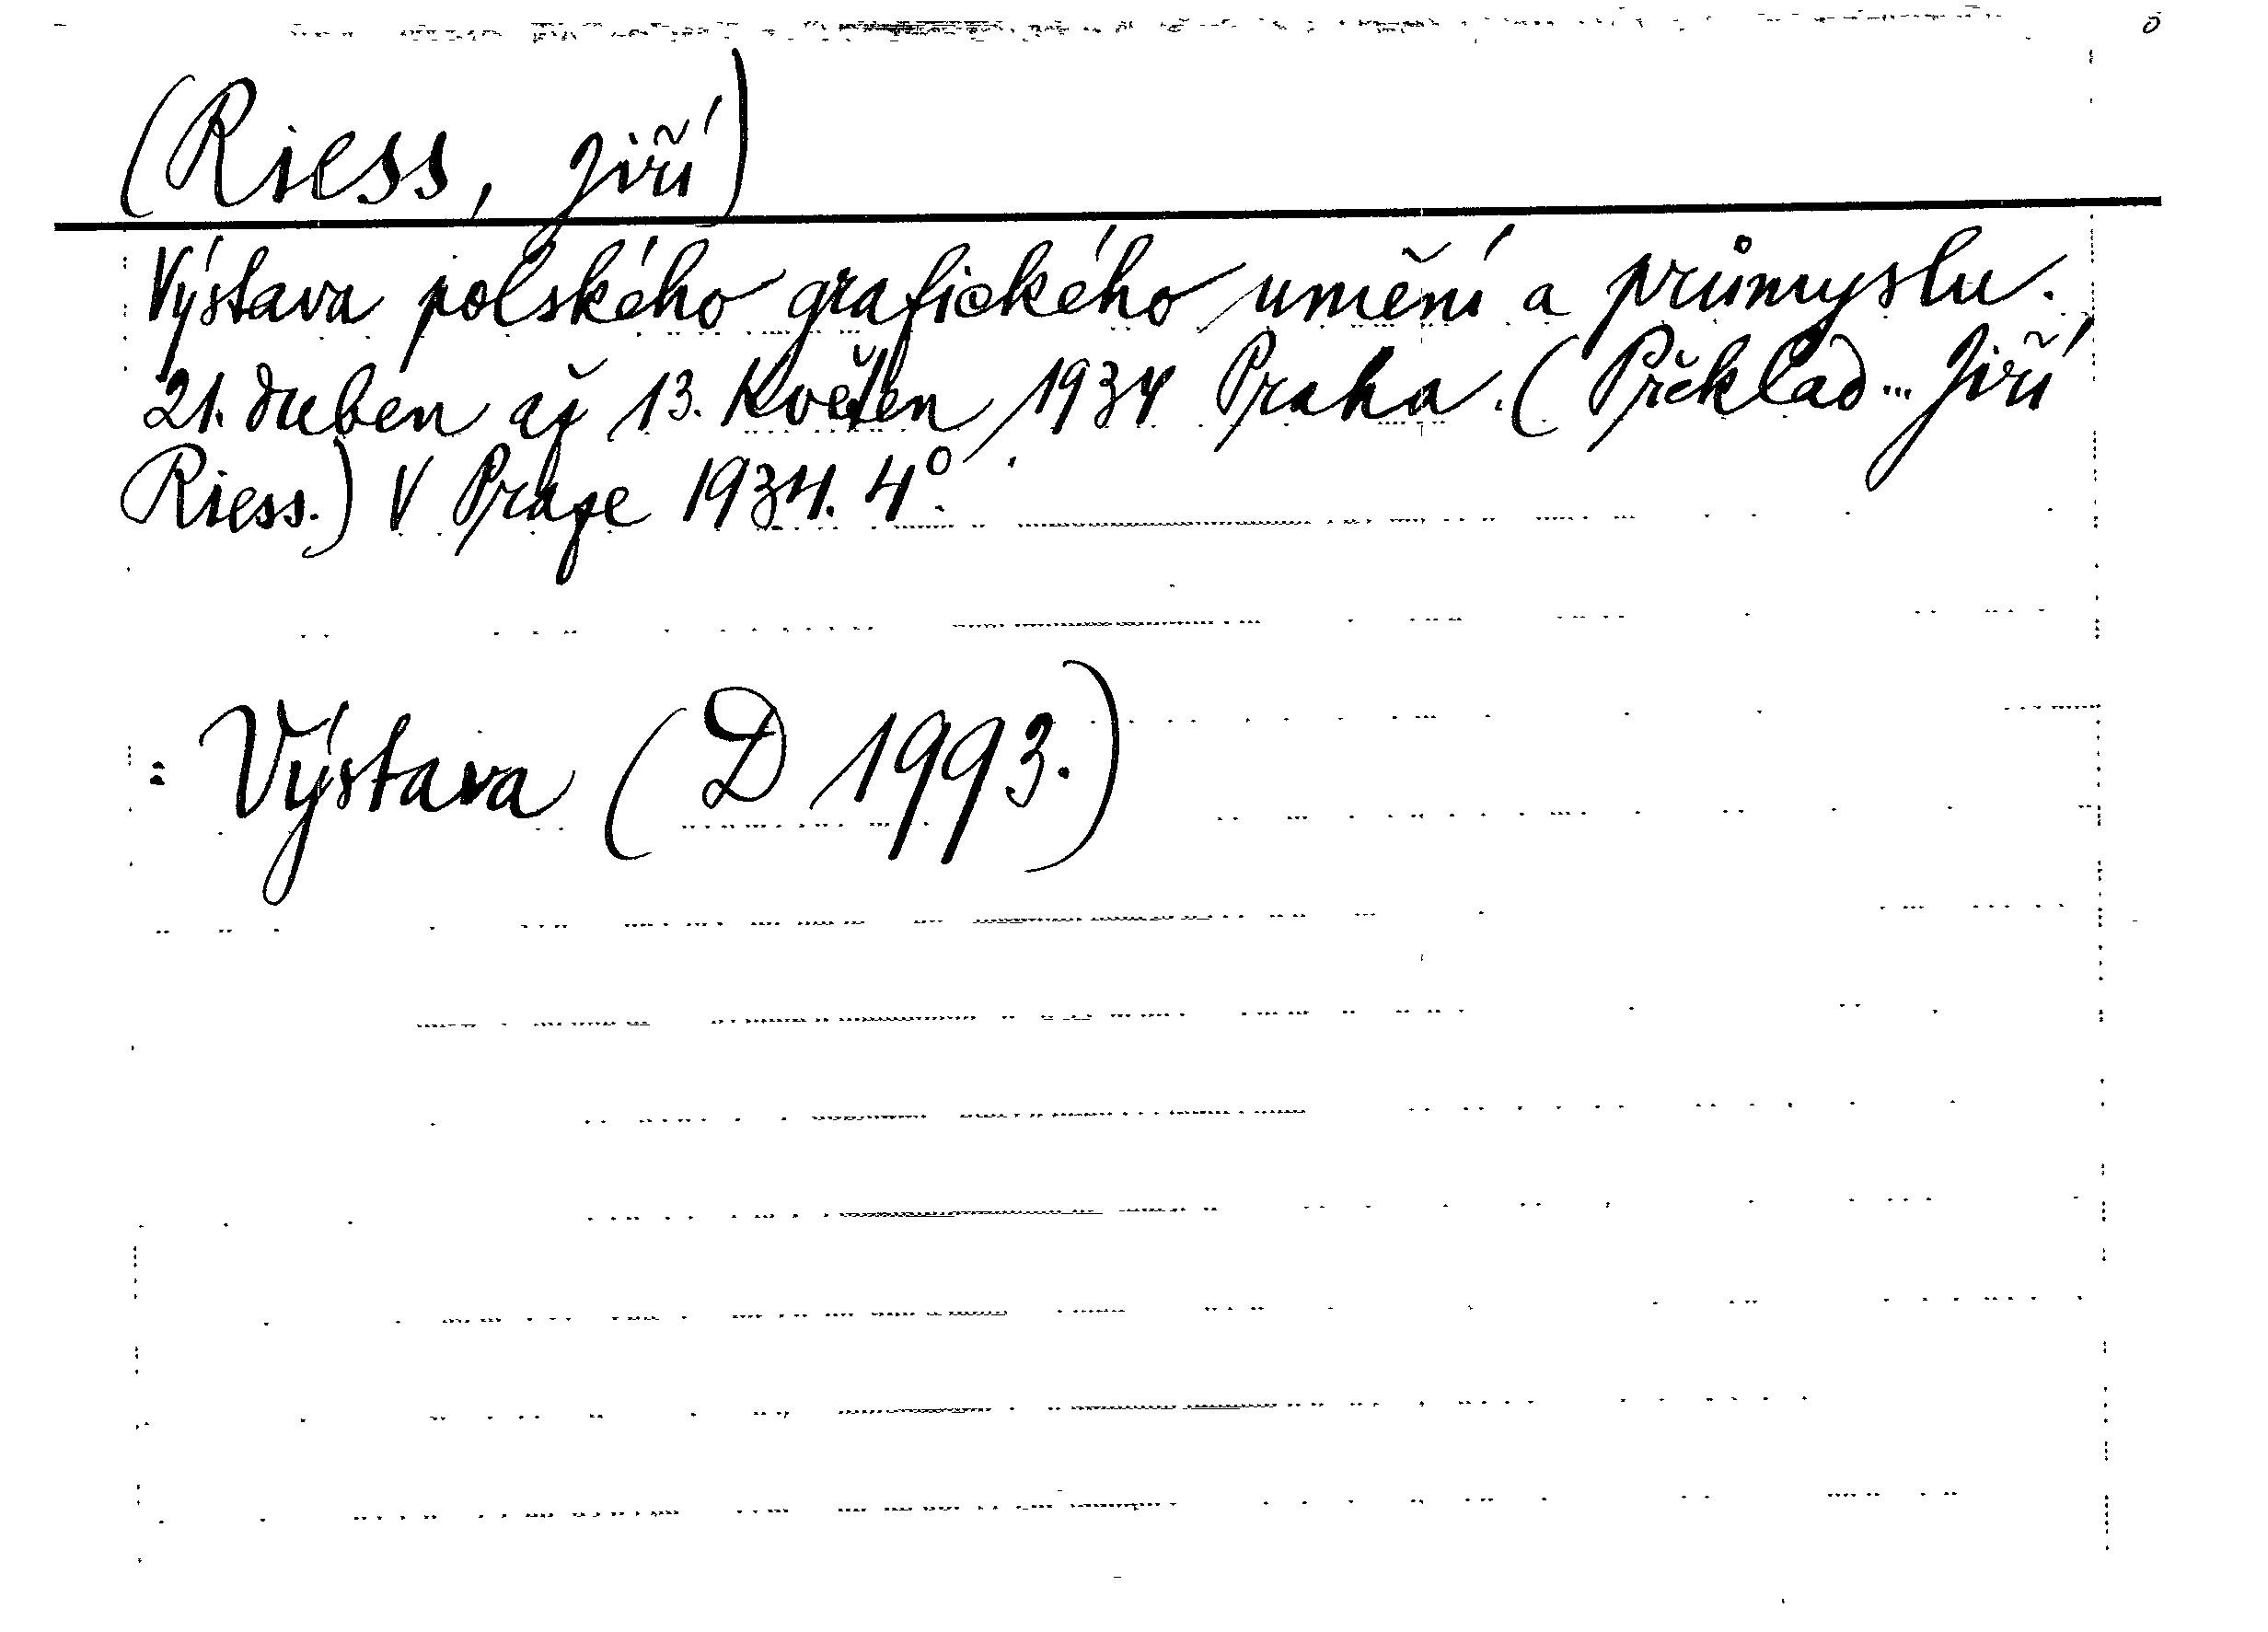 (Riess, Jiří)
Výstava polského grafického umění a průmyslu.
21. duben až 13. Květen 1934 Praha. (Překlad... Jiří
Riess.) V Praze 1934. 4°.
: Výstava (D 1993.)